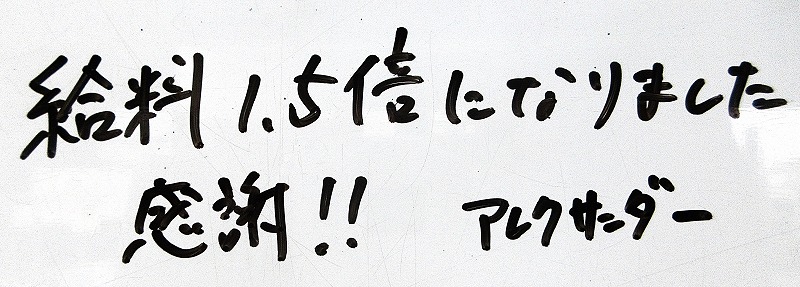 給料1.5倍になりました
感謝!! アレクサンダー